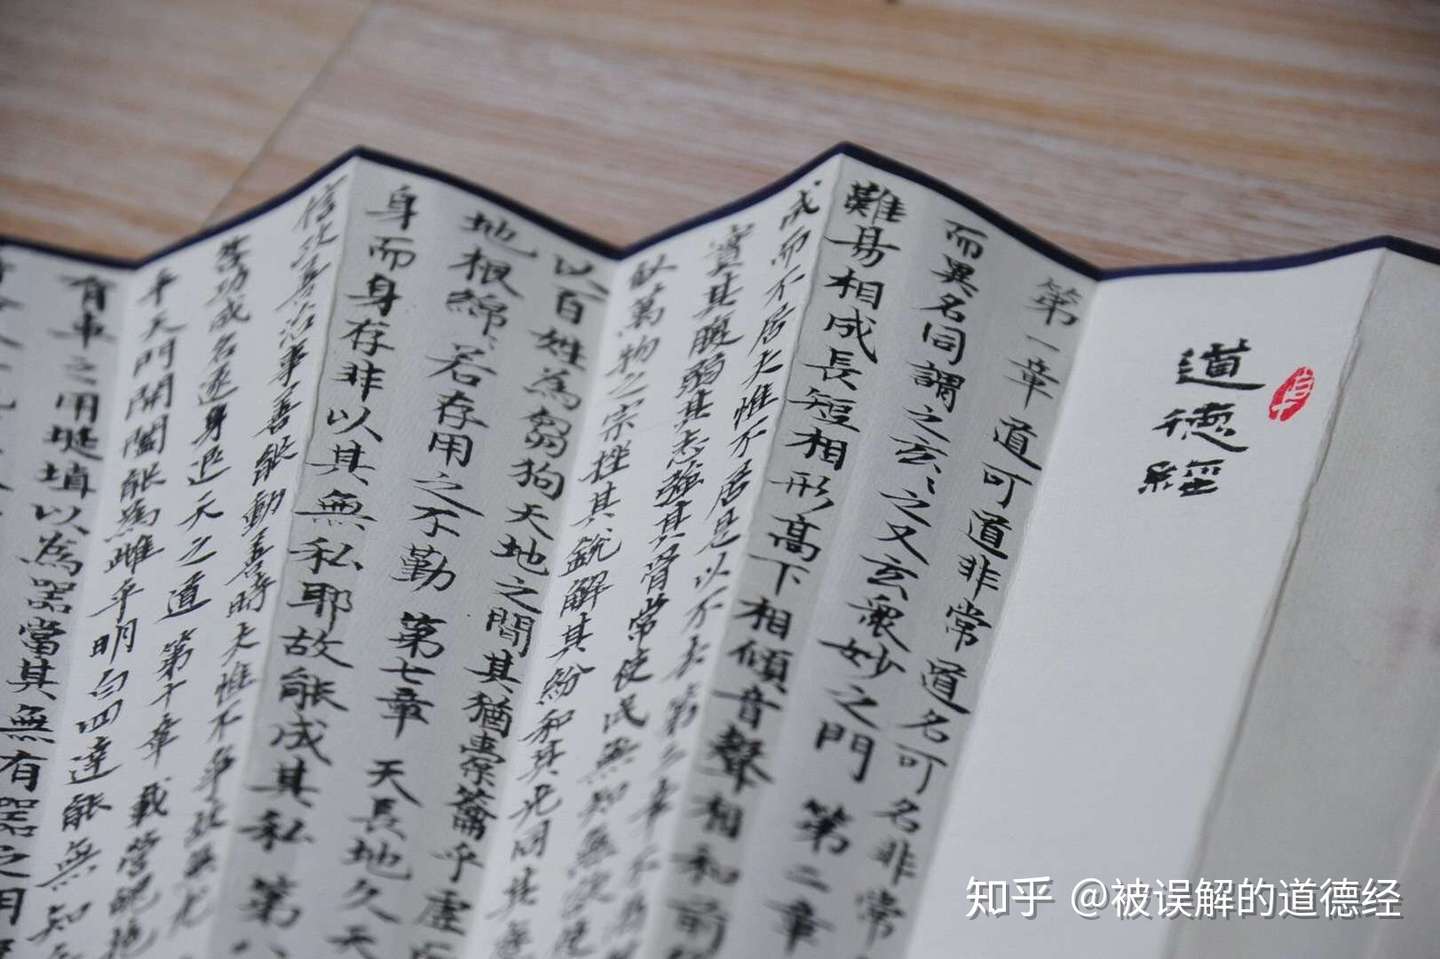 道德經
第一章 道可道非常道名可名非常
而異名同謂之玄、之又玄衆妙之門 第二章
難易相成長短相形高下相傾音聲相和前
成而不居夫惟不居是以不去 第三章 不尚
實其腹弱其志強其骨常使民無知無欲使
似萬物之宗挫其銳解其紛和其光同其塵
以百姓為芻狗天地之間其猶橐籥乎虛而
地根綿、若存用之不勤 第七章 天長地久天
身而身存非以其無私耶故能成其私 第八
信政善治事善能動善時夫惟不爭故無尤
功成名遂身退天之道 第十章 載營魄抱
乎天門開闔能為雌乎明白四達能無知
有車之用埏埴以為器當其無有器之用
知乎 @被误解的道德经